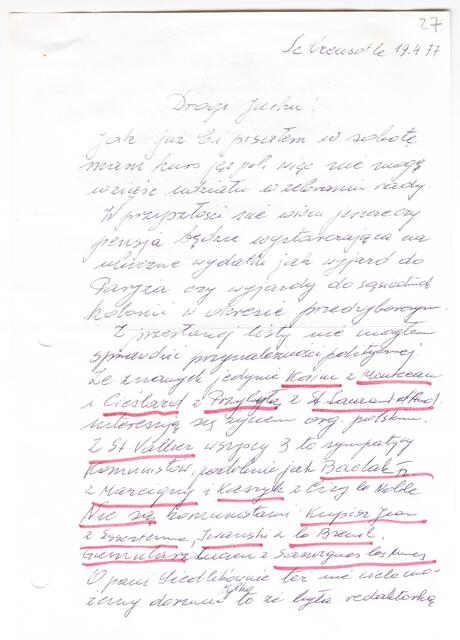 27
Le Creusot le 19.4.77
Drogi Jurku!
Jak już Ci pisałem w sobotę
mam kurs jęz. pol. więc nie mogę
wziąść udziału w zebraniu rady.
W przyszłości nie wiem jeszcze czy
pensja będzie wystarczająca na
uliczne wydatki jak wyjazd do
Paryża czy wyjazdy do sąsiednich
kolonii w okresie przedwyborczym.
Z przesłanej listy nie mogłem
sprawdzić przynależności politycznej.
Ze znanych jedynie Kosim z Montceau
i Cieślard z Przybyłą z St Laurent d/And.
interesują się życiem org. polskim.
Z St Vallier wszyscy 3 to sympatycy
Komunistów, podobnie jak Baclak Fr
z Marcigny i Kaszyk z Ciry le Noble
Nie są komunistami Krupisz Jean
z Essertenne, z le Breuil.
z Sanvignes les Mines
O pani też nie wiele mo-
żemy donieść tylko to że była redaktorką